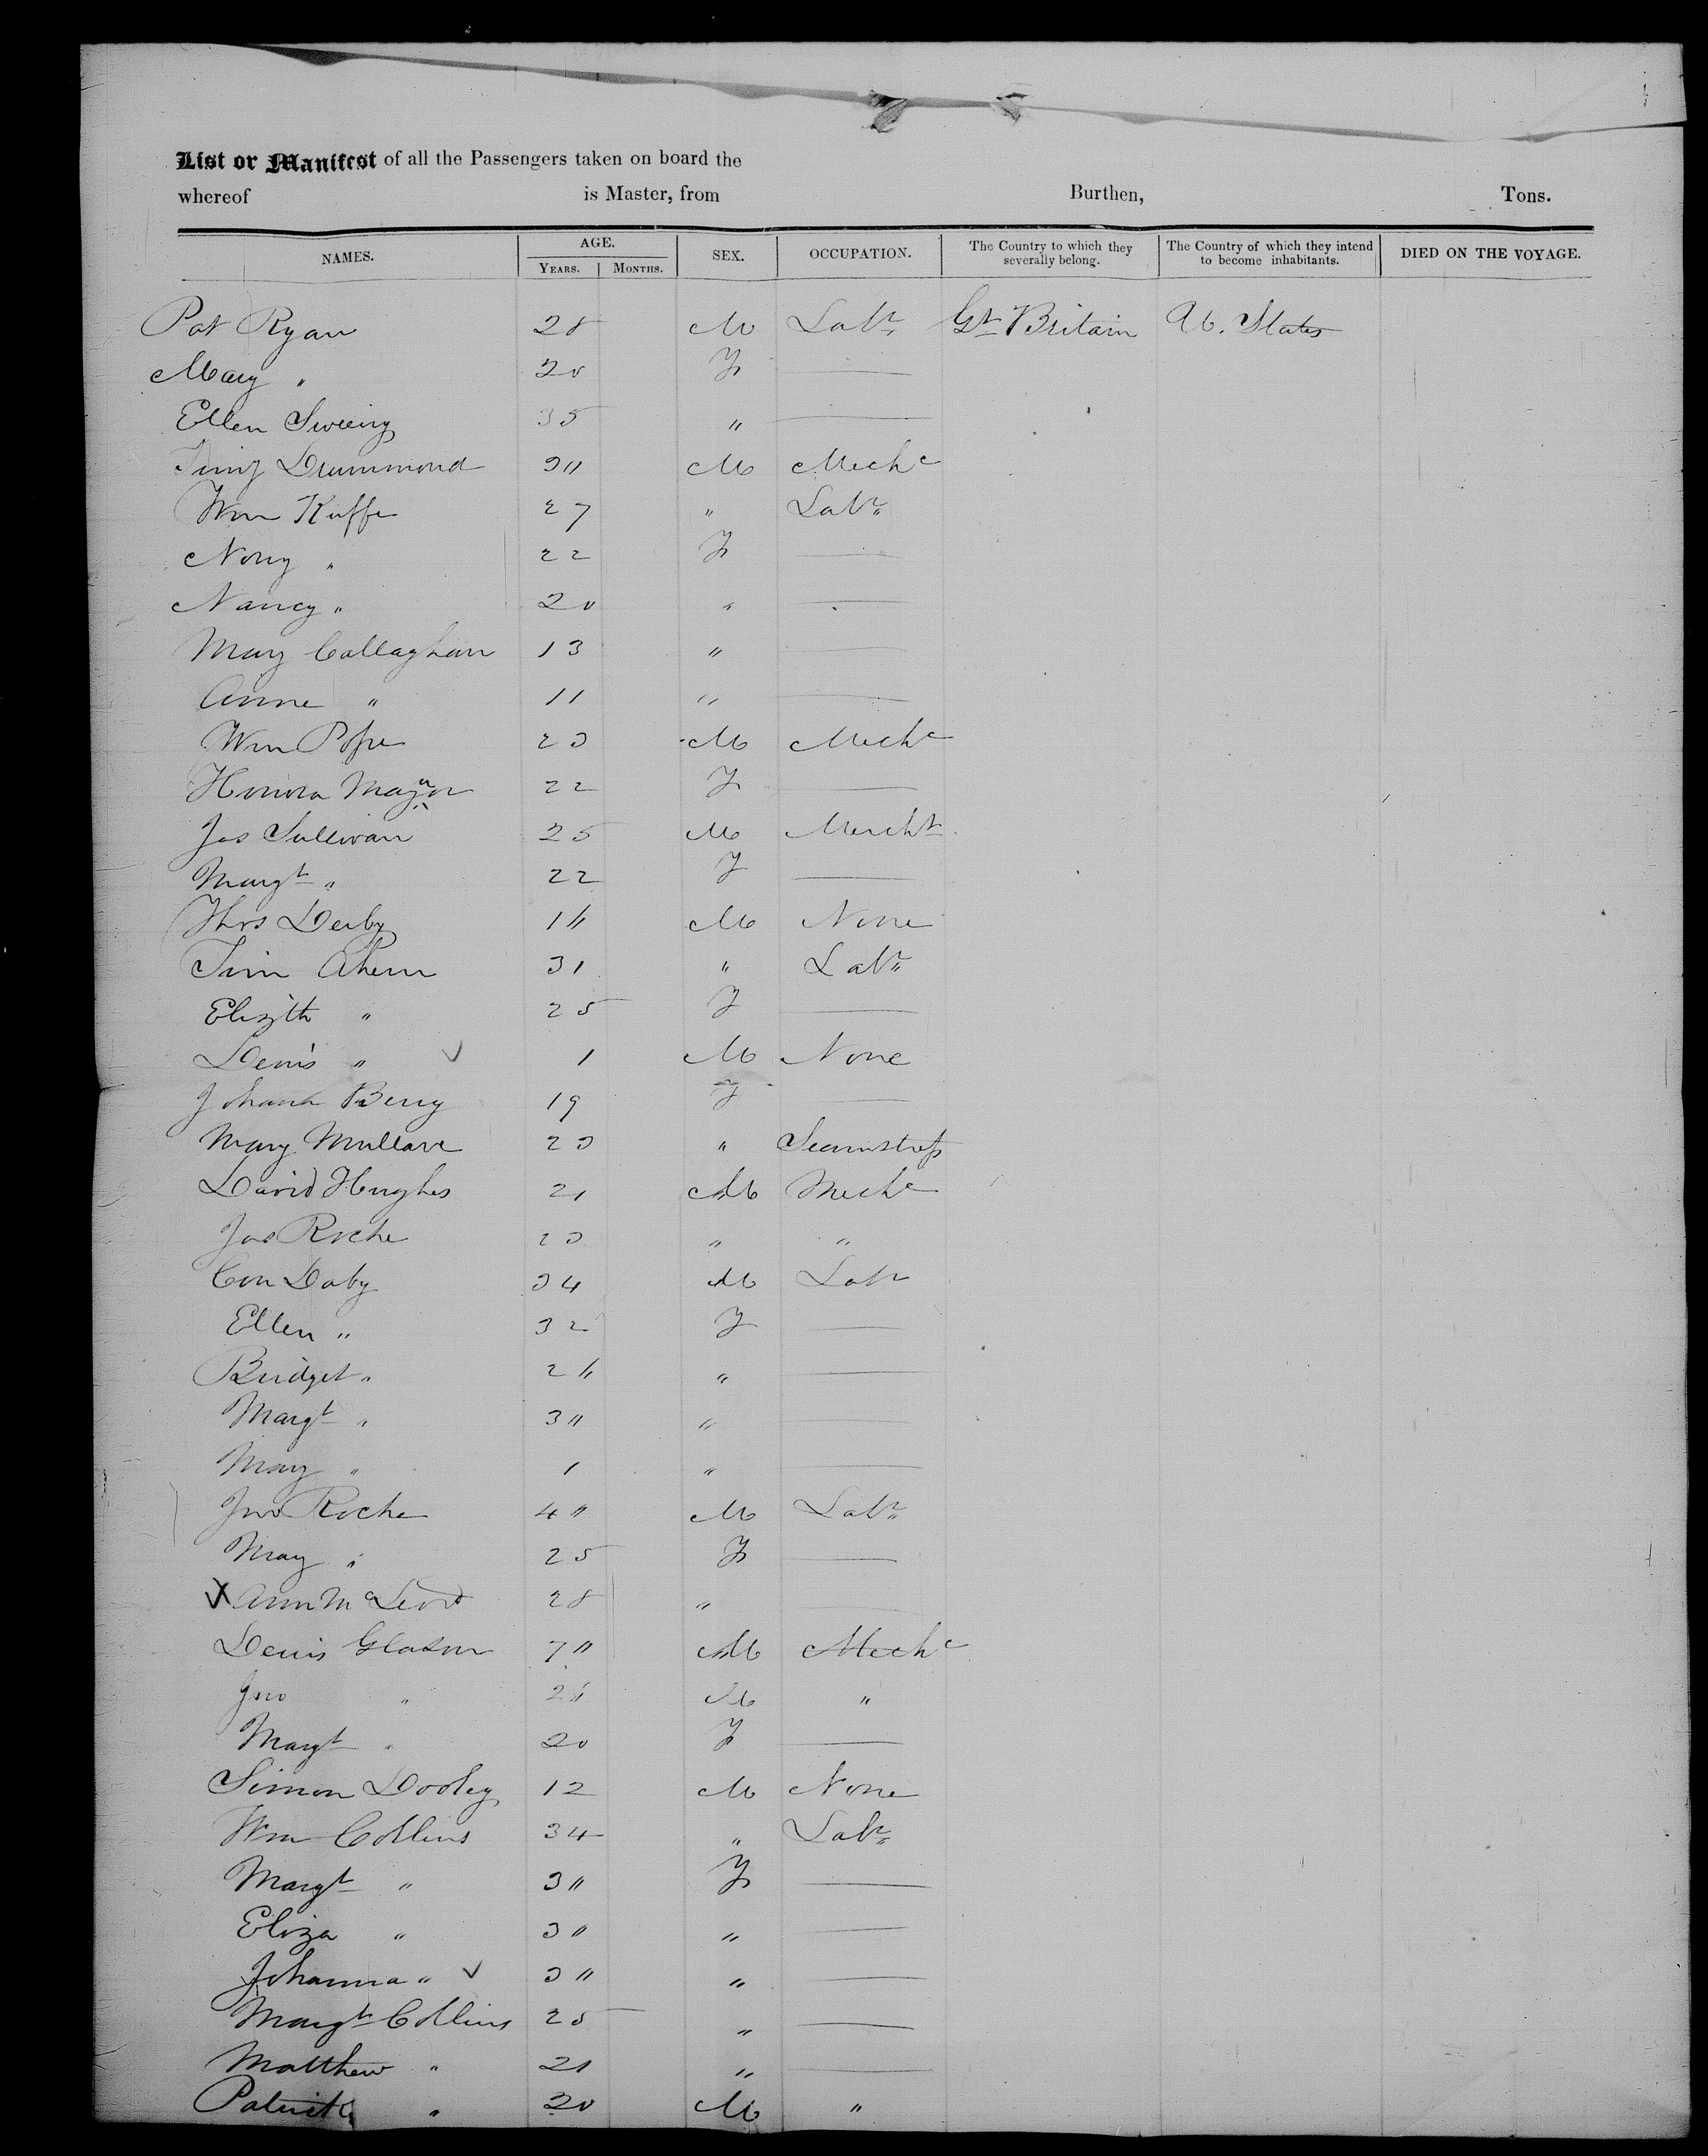 List or Manifest of all the Passengers taken on board the
whereof is Master, from Burthen, Tons.
NAMES. AGE. YEARS. MONTHS. SEX. OCCUPATION. The Country to which they severally belong. The Country of which they intend to become inhabitants. DIED ON THE VOYAGE.
Pat Ryan 28 M Labr Gt Britain U. States
Mary " 20 F
Ellen Sweeny 35 "
Timy Drummond 3" M Mechc
Wm Kuffe 27 " Labr
Nony " 22 F
Nancy " 20 "
Mary Callaghan 13 "
Anne " 11 "
Wm Pope 23 M Mechc
Honora 22 F
Jas Sullivan 25 M Mercht
Margt " 22 F
Thos Derby 1" M None
Tim Ahern 31 " Labr
Elizth " 25 F
Denis " 1 M None
Johana Berry 19 F
Mary Mullane 23 " Seamstress
David Hughes 21 M Mechc
Jas Roche 23 " "
Con Daby 34 M Labr
Ellen " 32 F
Bridget " 2" "
Margt " 3" "
Mary " 1 "
Jno Roche 4" M Labr
Mary " 25 F
Ann McLeod 28 "
Denis Glason 7" M Mechc
Jno " 2" M "
Margt " 20 F
Simon Dooley 12 M None
Wm Collins 34 " Labr
Margt " 3" F
Eliza " 3" "
Johanna " 3" "
Margt Collins 25 "
Matthew " 21 "
Patrick " 20 M "